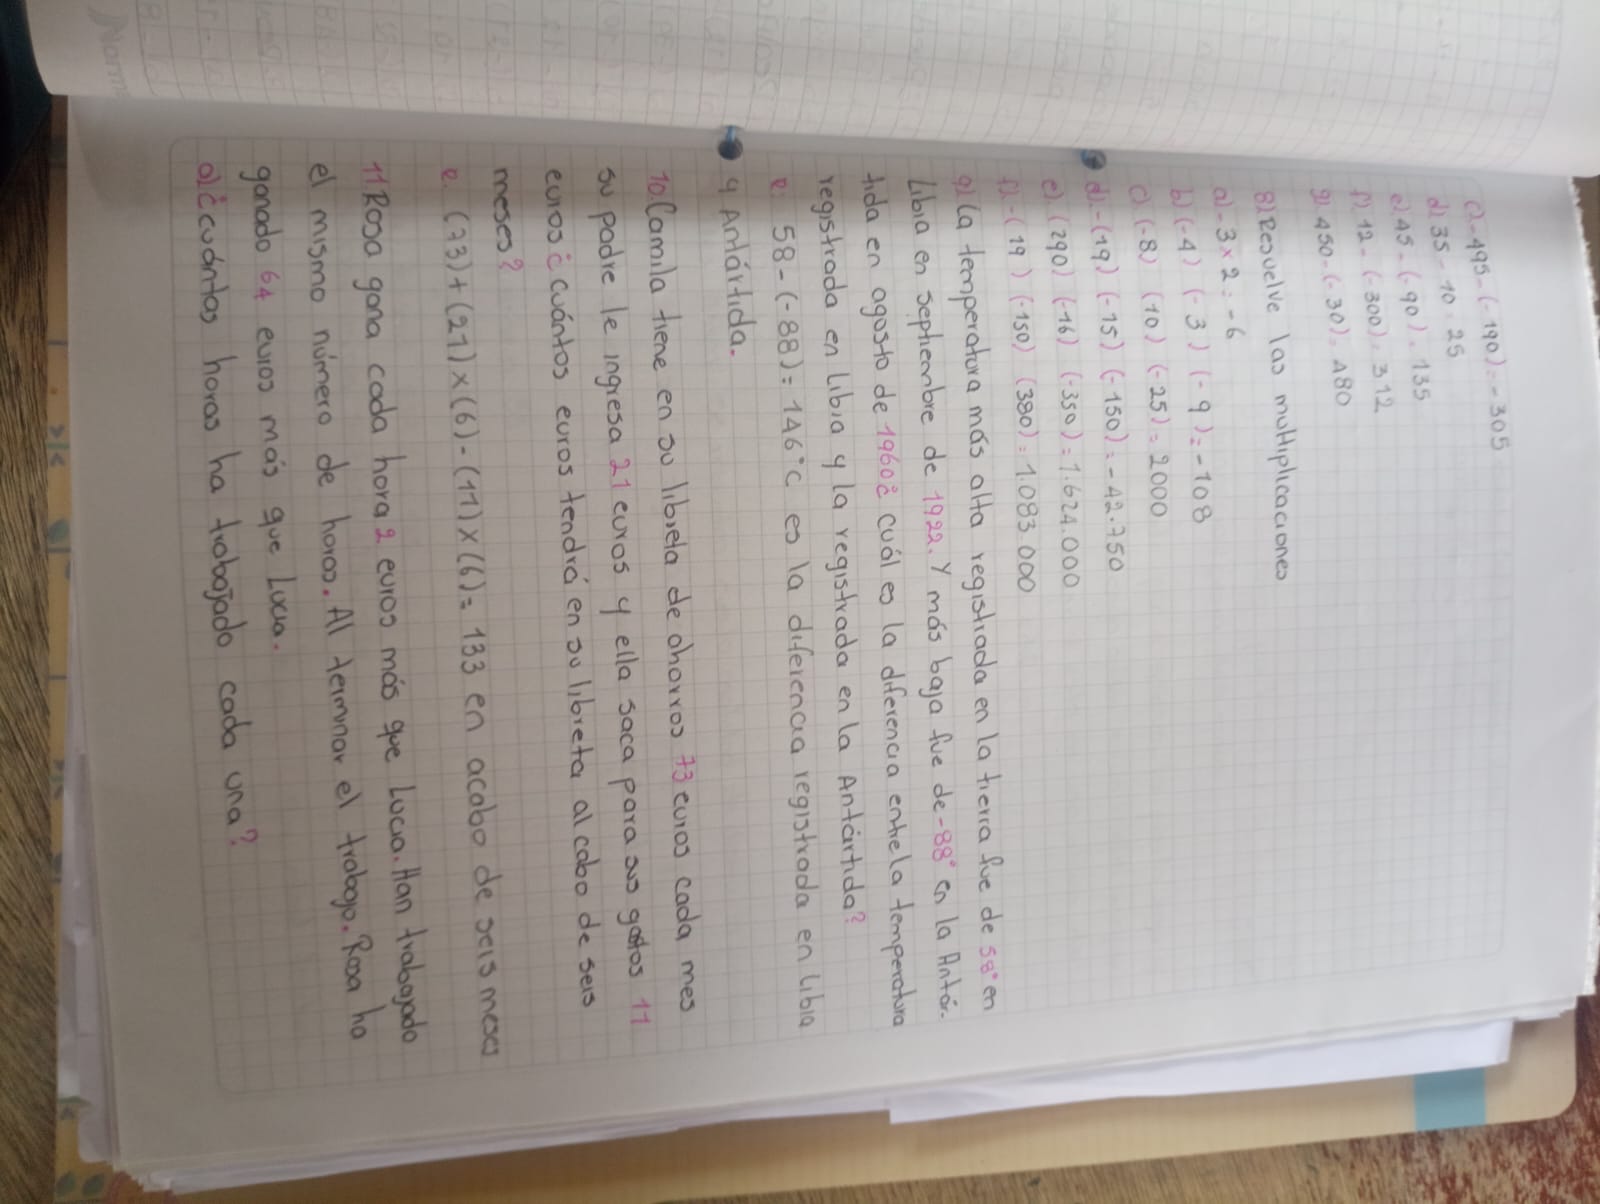 c) -495 - (-190) = -305
d) 35 - 10 = 25
e) 45 - (-90) = 135
f) 12 - (-300) = 312
g) 450 - (-30) = 480
8) Resuelve las multiplicaciones
a) -3 x 2 = -6
b) (-4) (-3) (-9) = -108
c) (-8) (10) (-25) = 2000
d) -(19) (-15) (-150) = -42.750
e) (290) (-16) (-350) = 1.624.000
f) -(19) (-150) (380) = 1.083.000
9) La temperatura más alta registrada en la tierra fue de 58° en
Libia en septiembre de 1922. Y más baja fue de -88° en la Antár-
tida en agosto de 1960 ¿ cuál es la diferencia entre la temperatura
registrada en Libia y la registrada en la Antártida?
R. 58 - (-88) = 146°C es la diferencia registrada en Libia
y Antártida.
10. Camila tiene en su libreta de ahorros 73 euros cada mes
su padre le ingresa 21 euros y ella saca para sus gastos 11
euros ¿ cuántos euros tendrá en su libreta al cabo de seis
meses?
R. (73) + (21) x (6) - (11) x (6) = 133 en acabo de seis meses
11 Rosa gana cada hora 2 euros más que Lucia. Han trabajado
el mismo número de horas. Al terminar el trabajo. Rosa ha
ganado 64 euros más que Lucia.
a) ¿cuántas horas ha trabajado cada una?